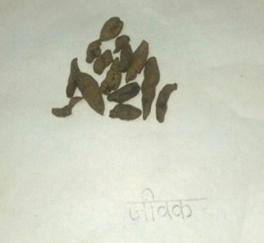 जीवक